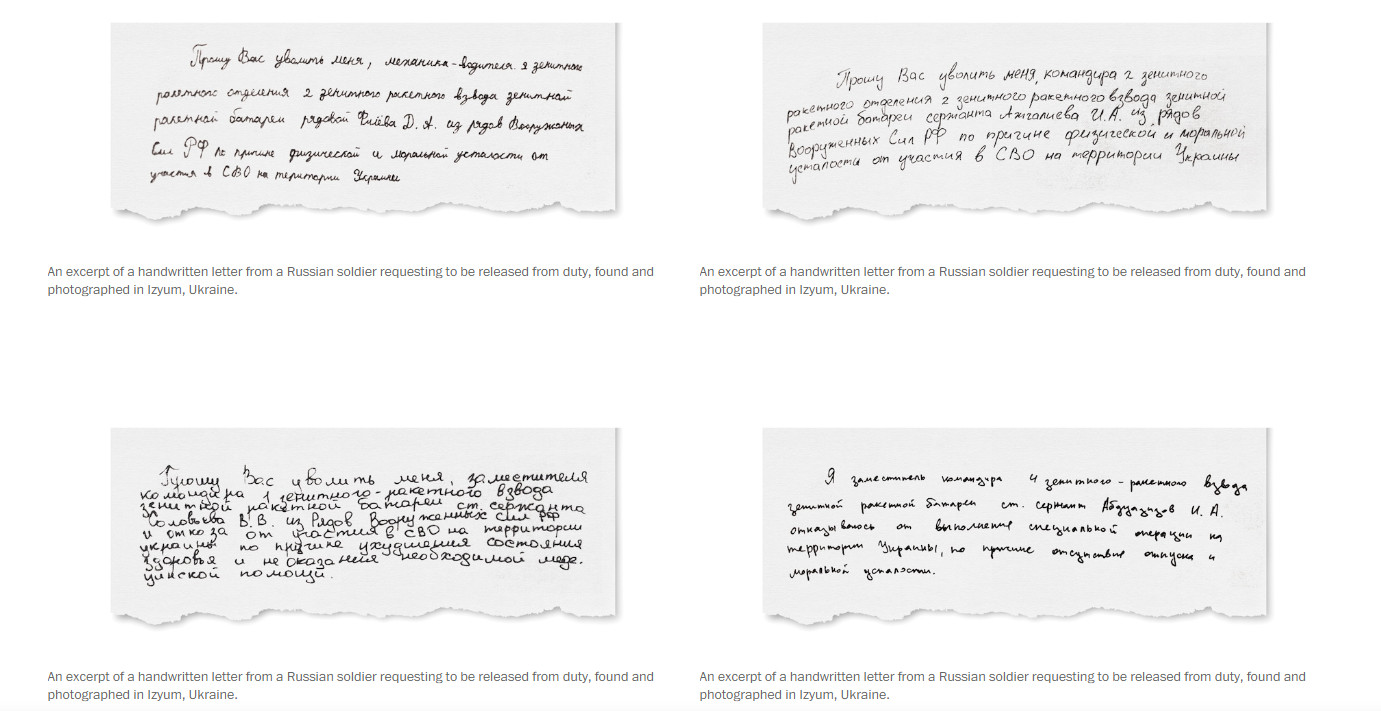 Прошу Вас уволить меня, механика-водителя 2 зенитного
ракетного отделения 2 зенитного ракетного взвода зенитной
ракетной батареи рядовой Д. А. из рядов Вооруженых
Сил РФ по причине физической и моральной усталости от
участия в СВО на територии Украины
An excerpt of a handwritten letter from a Russian soldier requesting to be released from duty, found and
photographed in Izyum, Ukraine.
Прошу Вас уволить меня, командира 2 зенитного
ракетного отделения 2 зенитного ракетного взвода зенитной
ракетной батареи сержанта Ажгалиева И.А. из рядов
Вооруженных Сил РФ по причине физической и моральной
усталости от участия в СВО на территории Украины
An excerpt of a handwritten letter from a Russian soldier requesting to be released from duty, found and
photographed in Izyum, Ukraine.
Прошу Вас уволить меня, заместителя
командира 1 зенитного-ракетного взвода
зенитной ракетной батареи ст. сержанта
Соловьева В.В. из Рядов Вооруженных сил РФ
и отказа от участия в СВО на территории
украины по причине ухудшения состояния
здоровья и не оказания необходимой меди-
цинской помощи.
An excerpt of a handwritten letter from a Russian soldier requesting to be released from duty, found and
photographed in Izyum, Ukraine.
Я заместитель командира 4 зенитного-ракетного взвода
зенитной ракетной батареи ст. сержант И. А.
отказываюсь от выполнение специальной операции на
территории Украины, по причине отсутствие отпуска и
моральной усталости.
An excerpt of a handwritten letter from a Russian soldier requesting to be released from duty, found and
photographed in Izyum, Ukraine.